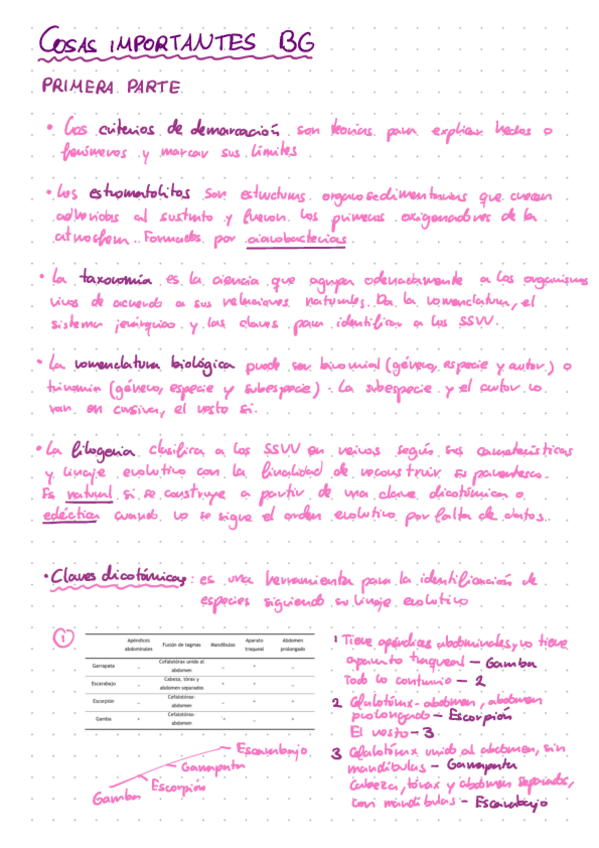 COSAS IMPORTANTES BG
PRIMERA PARTE
• Los criterios de demarcación son teorías para explicar hechos o
fenómenos y marcar sus límites
• Los estromatolitos son estructuras organosedimentarias que crecen
adheridas al sustrato y fueron los primeros oxigenadores de la
atmósfera. Formados por cianobacterias
• La taxonomía es la ciencia que agrupa ordenadamente a los organismos
vivos de acuerdo a sus relaciones naturales. Da la nomenclatura, el
sistema jerárquico y las claves para identificar a los SSVV.
• La nomenclatura biológica puede ser binomial (género, especie y autor) o
trinomia (género, especie y subespecie). La subespecie y el autor no
van en cursiva, el resto si.
• La filogenia clasifica a los SSVV en reinos según sus características
y linaje evolutivo con la finalidad de reconstruir su parentesco.
Es natural si se construye a partir de una clave dicotómica o
ecléctica cuando no se sigue el orden evolutivo por falta de datos.
• Claves dicotómicas: es una herramienta para la identificación de
especies siguiendo su linaje evolutivo
1
Apéndices abdominales Fusión de tagmas Mandíbulas Aparato traqueal Abdomen prolongado
Garrapata _ Cefalotórax unido al abdomen _ + _
Escarabajo _ Cabeza, tórax y abdomen separados + + _
Escorpión _ Cefalotórax-abdomen _ + +
Gamba + Cefalotórax-abdomen + _ +
1 Tiene apéndices abdominales, no tiene
aparato traqueal – Gamba
Todo lo contrario – 2
2 Cefalotórax-abdomen, abdomen
prolongado – Escorpión
El resto – 3
3 Cefalotórax unido al abdomen, sin
mandíbulas – Garrapata
Cabeza, tórax y abdomen separados,
con mandíbulas – Escarabajo
Escarabajo
Garrapata
Escorpión
Gamba